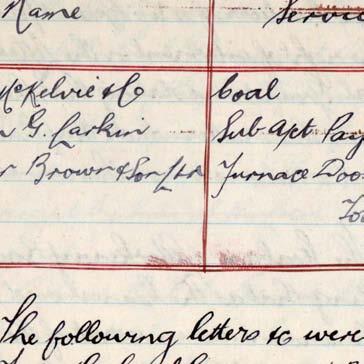 Name Service
McKelvie & Co Coal
G. Larkin Sub Apt Pay
Brown & Son Ltd Furnace Doo
To
The following letters &c were